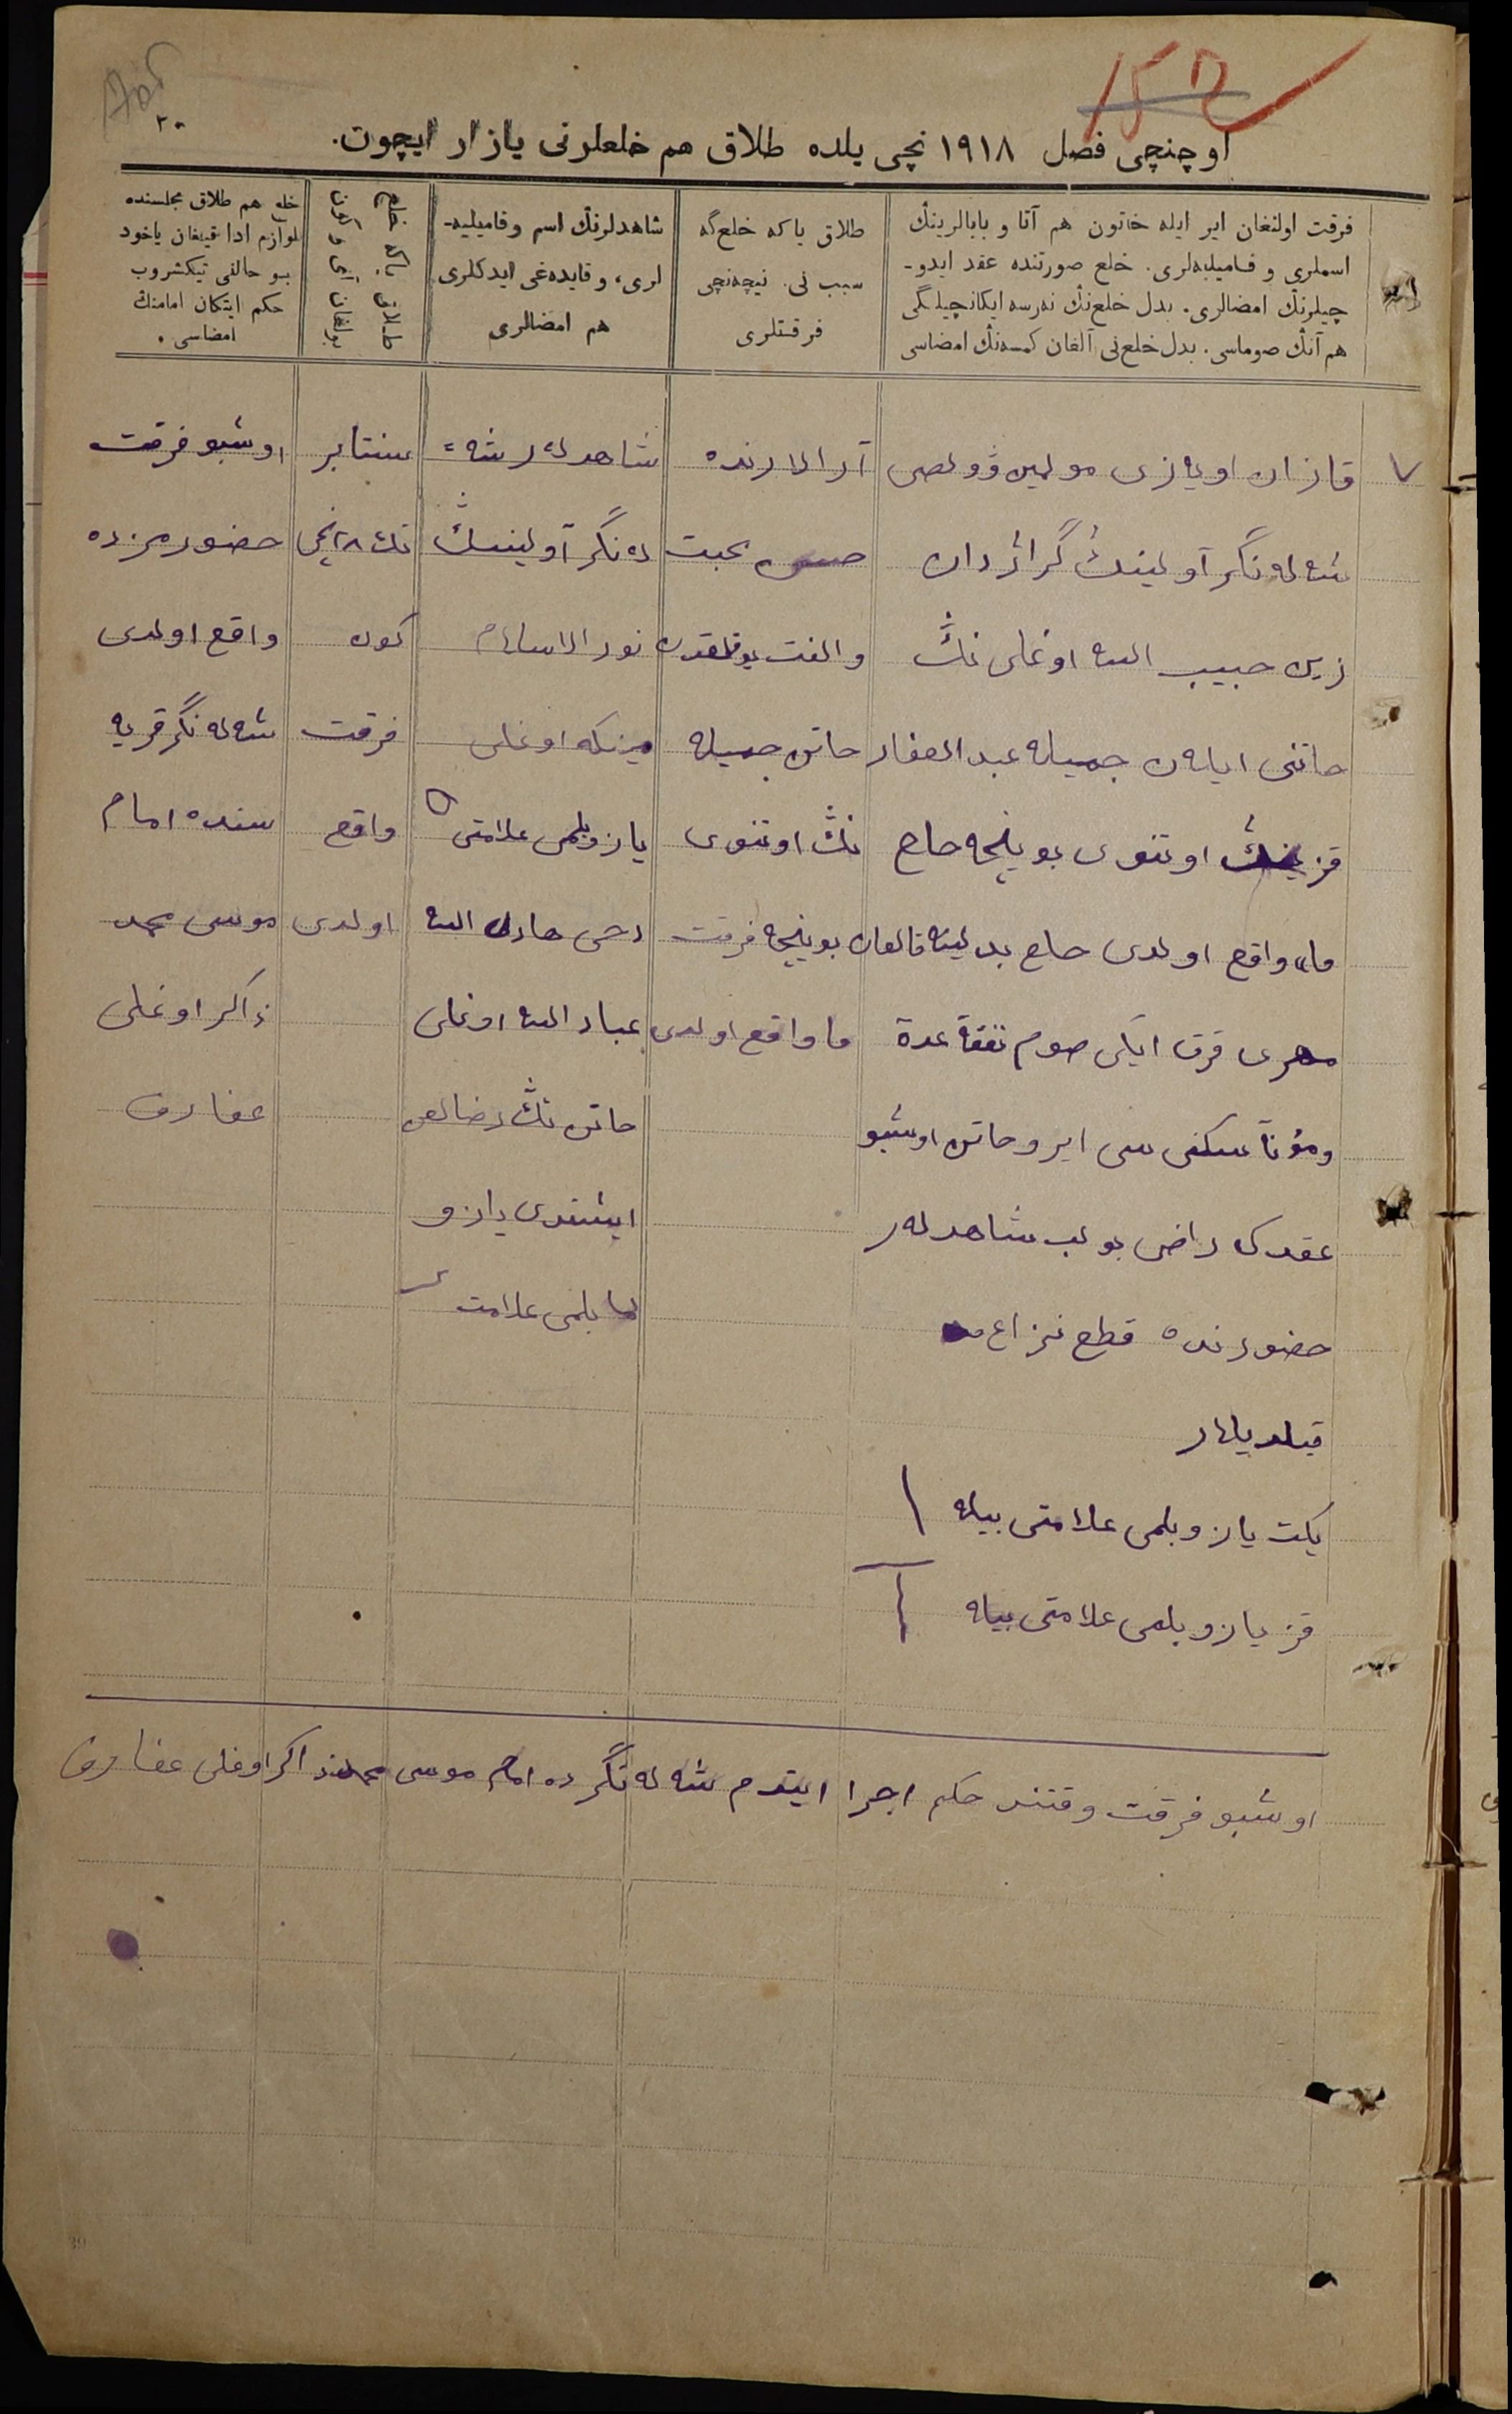 152
٢٠
اوچنچی فصل ١٩١٨ نچی یلده طلاق هم خلعلرنی یازار ایچون.
فرقت اولنغان ایر ایله خاتون هم آتا و بابالرینڭ
اسملری و فامیلیه‌لری. خلع صورتنده عقد ایدو-
چیلرنڭ امضالری. بدل خلع‌نڭ نه‌رسه ایکانچیلگی
هم آنڭ صوماسی. بدل خلع‌نی آلغان کمسه‌نڭ امضاسی
طلاق یا که خلع‌گه
سبب نی. نیچه‌نچی
فرقتلری
شاهدلرنڭ اسم و فامیلیه-
لری، و قایده‌غی ایدکلری
هم امضالری
طلاق یا که خلع
بولغان آی و کون
خلع هم طلاق مجلسنده
لوازم ادا قیلغان یاخود
بو حالنی تیکشروب
حکم ایتکان امامنڭ
امضاسی.
٧
قازان اویازی مولمین ڤولصی
شه‌له‌نگر آولینڭ گراژدان
زین حبیب الله اوغلی نڭ
خاتنی ایله‌ن جمیله عبد الغفار
قزینڭ اوتنوی بوینچه خلع
ما واقع اولدی خلع بدلینه قالغان
مهری قرق ایکی صوم نفقۀ عدة
ومؤنۀ سکنی سی ایر و خاتن اوشبو
عقدکا راضی بولب شاهدله‌ر
حضورنده قطع نزاع
قیلدیلار
یکت یازو بلمی علامتی بیله \
قز یازو بلمی علامتی بیله T
آرالارنده
حسن محبت
والفت یوقلقدن
خاتن جمیله
نڭ اوتنوی
بوینچه فرقت
ما واقع اولدی
شاهدله‌ر شه-
له‌نگر آولینڭ
نور الاسلام
مینکه اوغلی
یازو بلمی علامتی
دخی هادی الله
عباد الله اوغلی
خاتن نڭ رضالغن
ایشتدی یازو
بلمی علامت
سنتابر
نڭ ١٨نچی
کون
فرقت
واقع
اولدی
اوشبو فرقت
حضورمزده
واقع اولدی
شه‌له‌نگر قریه
سنده امام
موسی محمد
ذاکر اوغلی
غفارف
اوشبو فرقت وقتنده حکم اجرا ایتدم شه‌له‌نگرده امام موسی محمد ذاکر اوغلی غفارف